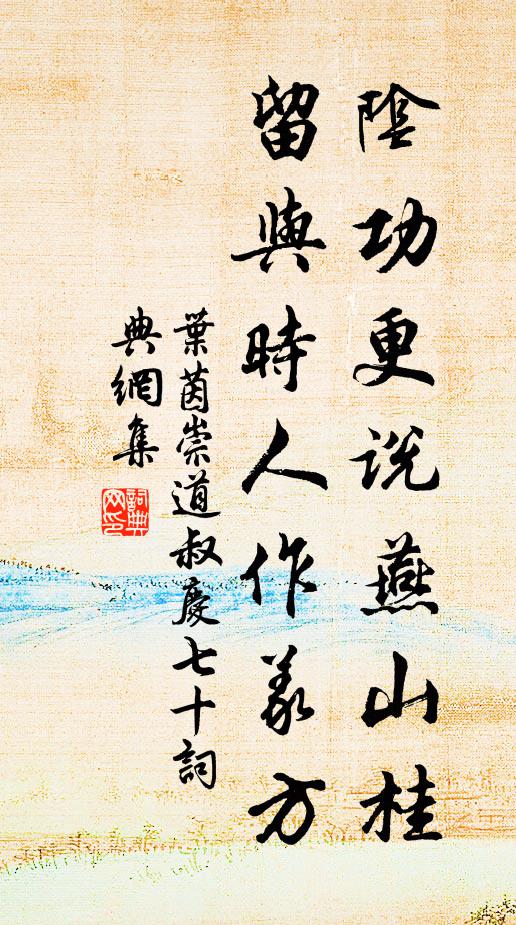 陰功更说燕山桂
留與時人作義方
葉茵崇道叔慶七十詞
典網集
詞典網印